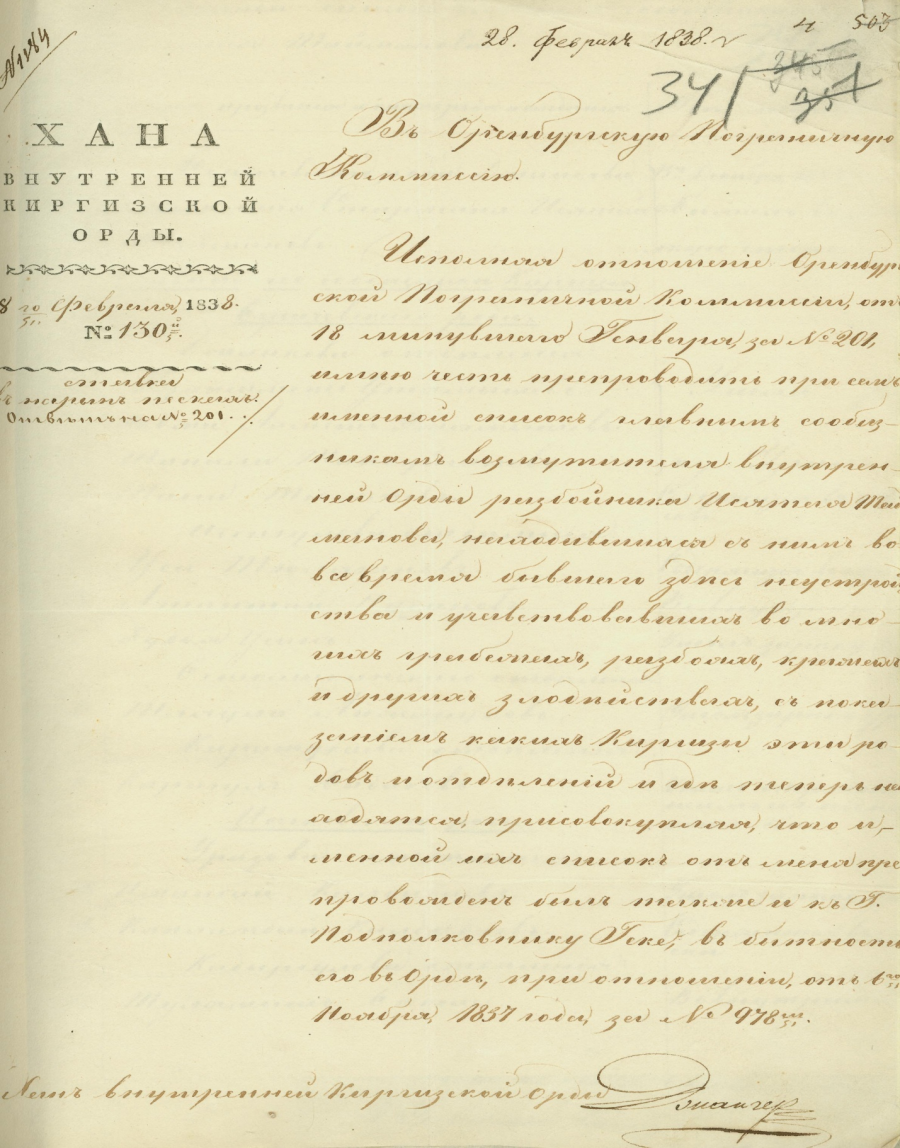 N 1184
28. Февраля 1838. г
4 503
341 345 351
ХАНА
ВНУТРЕННЕЙ
КИРГИЗСКОЙ
ОРДЫ.
8 го Февраля 1838.
№ 130й.
ставка
въ нарынъ пескахъ.
Отвѣтъ на № 201.
Въ Оренбургскую Пограничную
Коммиссію.
Исполняя отношеніе Оренбург
ской Пограничной Коммиссіи, отъ
18 минувшаго Генваря, за № 201,
имѣю честь препроводить при семъ
именной списокъ главнымъ сообщ-
никамъ возмутителя внутрен-
ней Орды разбойника Исятая Тай
манова, находившихся съ нимъ во
все время бывшаго здѣсь неустрой
ства и участвовавшихъ во мно-
гихъ грабежахъ, разбояхъ, кражахъ
и другихъ злодѣйствахъ, съ пока-
заніемъ какихъ Киргизы эти ро-
довъ и отдѣленій и гдѣ теперь на
ходятся, присовокупляя, что и-
менной ихъ списокъ отъ меня пре
провожденъ былъ также и къ Г.
Подполковнику Геке, въ битность
его въ Ордѣ, при отношеніи, отъ 6го
Ноября 1837 года, за № 978м.
Ханъ внутренней Киргизской Орды Джангер